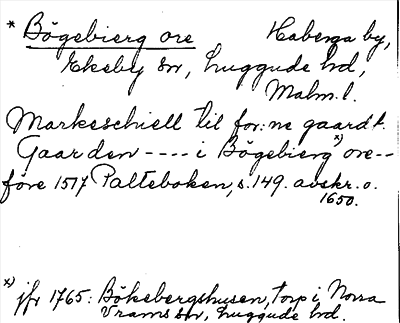 * Bögebierg ore Haberga by,
Ekeby sn, Luggude hd,
Malm. l.
Markeschiell til for:ne gaardt.
Gaarden ---- i Bögebierg x) ore--
före 1517 Palteboken, s. 149. avskr. o.
1650.
x) jfr 1765: Bökebergshusen, torp i Norra
Vrams sn, Luggude hd.